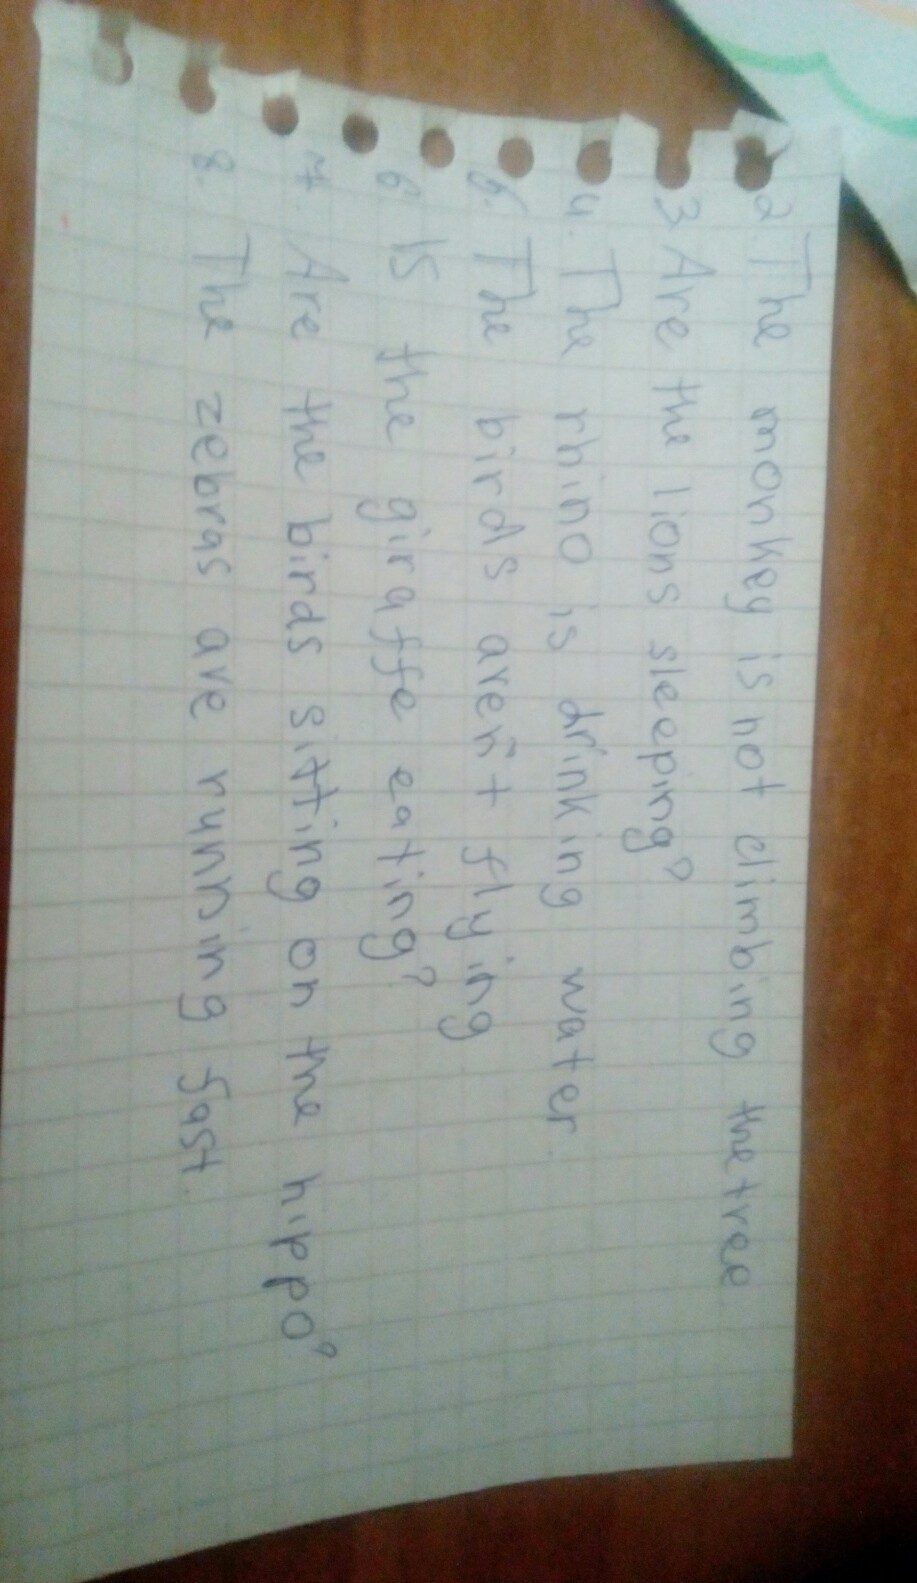 2. The monkey is not climbing the tree
3 Are the lions sleeping?
4. The rhino is drinking water.
6. The birds aren't flying
6. Is the giraffe eating?
7. Are the birds sitting on the hippo?
8. The zebras are running fast.